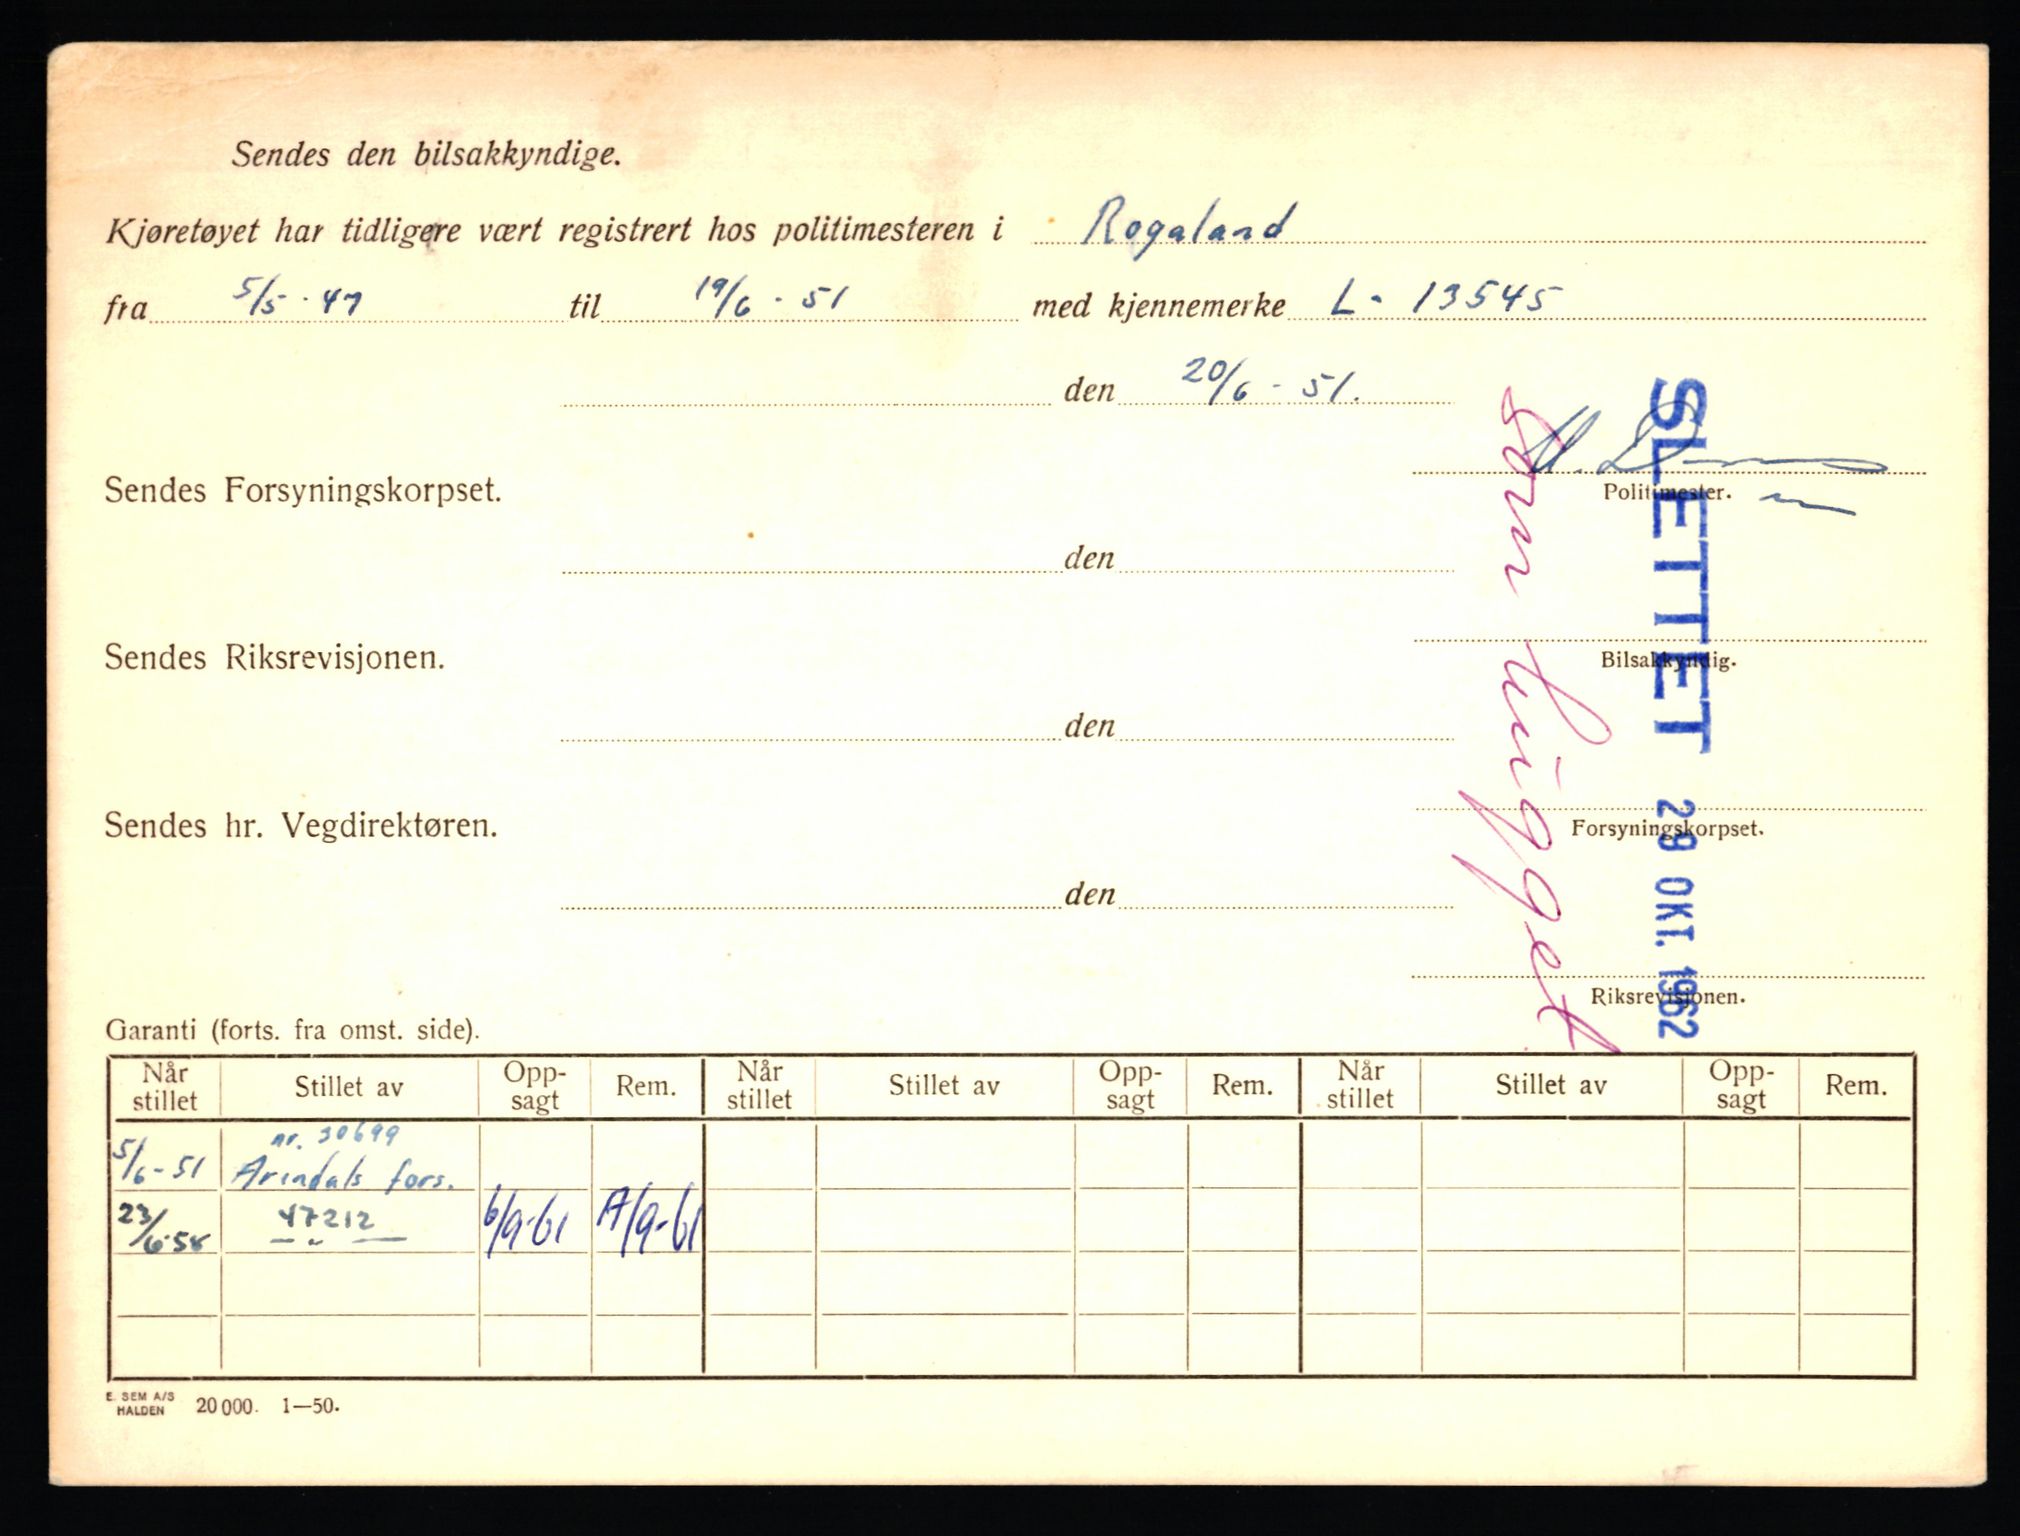 Sendes den bilsakkyndige.
Kjøretøyet har tidligere vært registrert hos politimesteren i Rogaland
fra 5/5 - 47 til 19/6 - 51 med kjennemerke L - 13545
den 20/6 - 51.
Politimester.
Sendes Forsyningskorpset.
den
Bilsakkyndig.
Sendes Riksrevisjonen.
den
Forsyningskorpset.
Sendes hr. Vegdirektøren.
den
Riksrevisjonen.
SLETTET 29 OKT. 1962
Som hugget
Garanti (forts. fra omst. side).
Når stillet Stillet av Opp-sagt Rem. Når stillet Stillet av Opp-sagt Rem. Når stillet Stillet av Opp-sagt Rem.
nr. 30699
5/6-51 Arindals fors.
23/6-58 47212 6/9-61 /9-61
— " —
E. SEM A/S
HALDEN 20 000. 1—50.